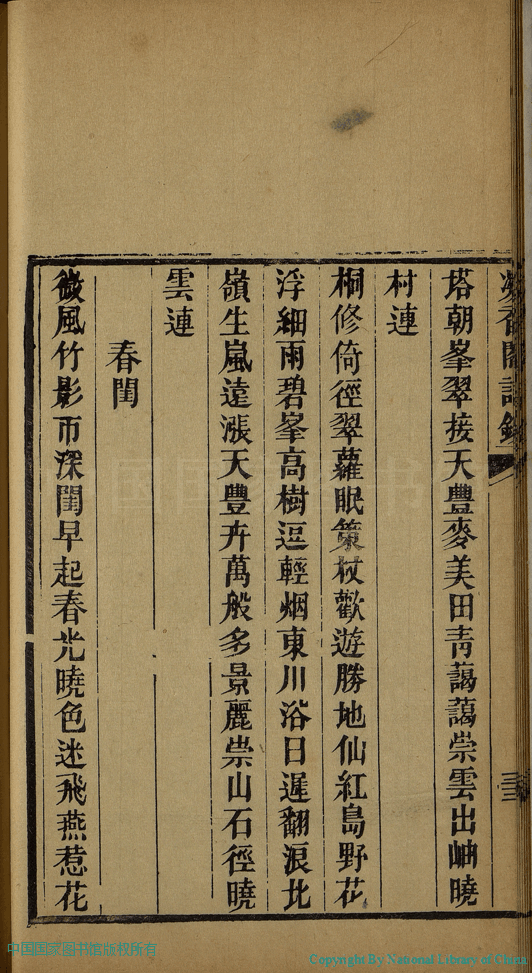 塔朝峯翠接天豐麥美田青藹藹崇雲出岫曉
村連
桐修倚徑翠蘿眠策杖歡遊勝地仙紅島野花
浮細雨碧峯高樹逗輕烟東川浴日遲翻浪北
嶺生嵐遠漲天豐卉萬般多景麗崇山石徑曉
雲連
春閨
微風竹影帀深閨早起春光曉色迷飛燕惹花
中国国家图书馆版权所有
Copyright By National Library of China